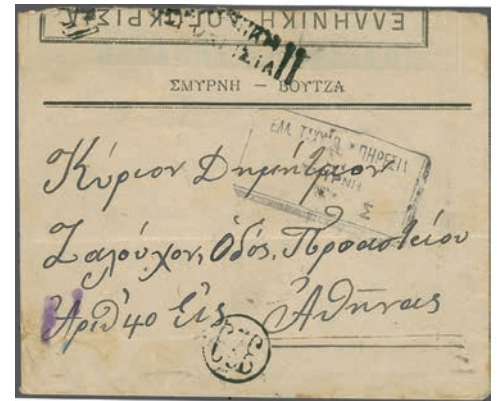 ΕΛΛΗΝΙΚΗ ΛΟΓΟΚΡΙΣΙΑ
ΣΜΥΡΝΗ — ΒΟΥΤΖΑ
ΕΛΛ. ΤΑΧΥΔ. ΥΠΗΡΕΣΙΑ
ΣΜΥΡΝΗ
Κύριον Δημήτριον
Ζαλούχον, Ὁδός, Προαστείου
Ἀριθ 40 Εἰς Ἀθήνας